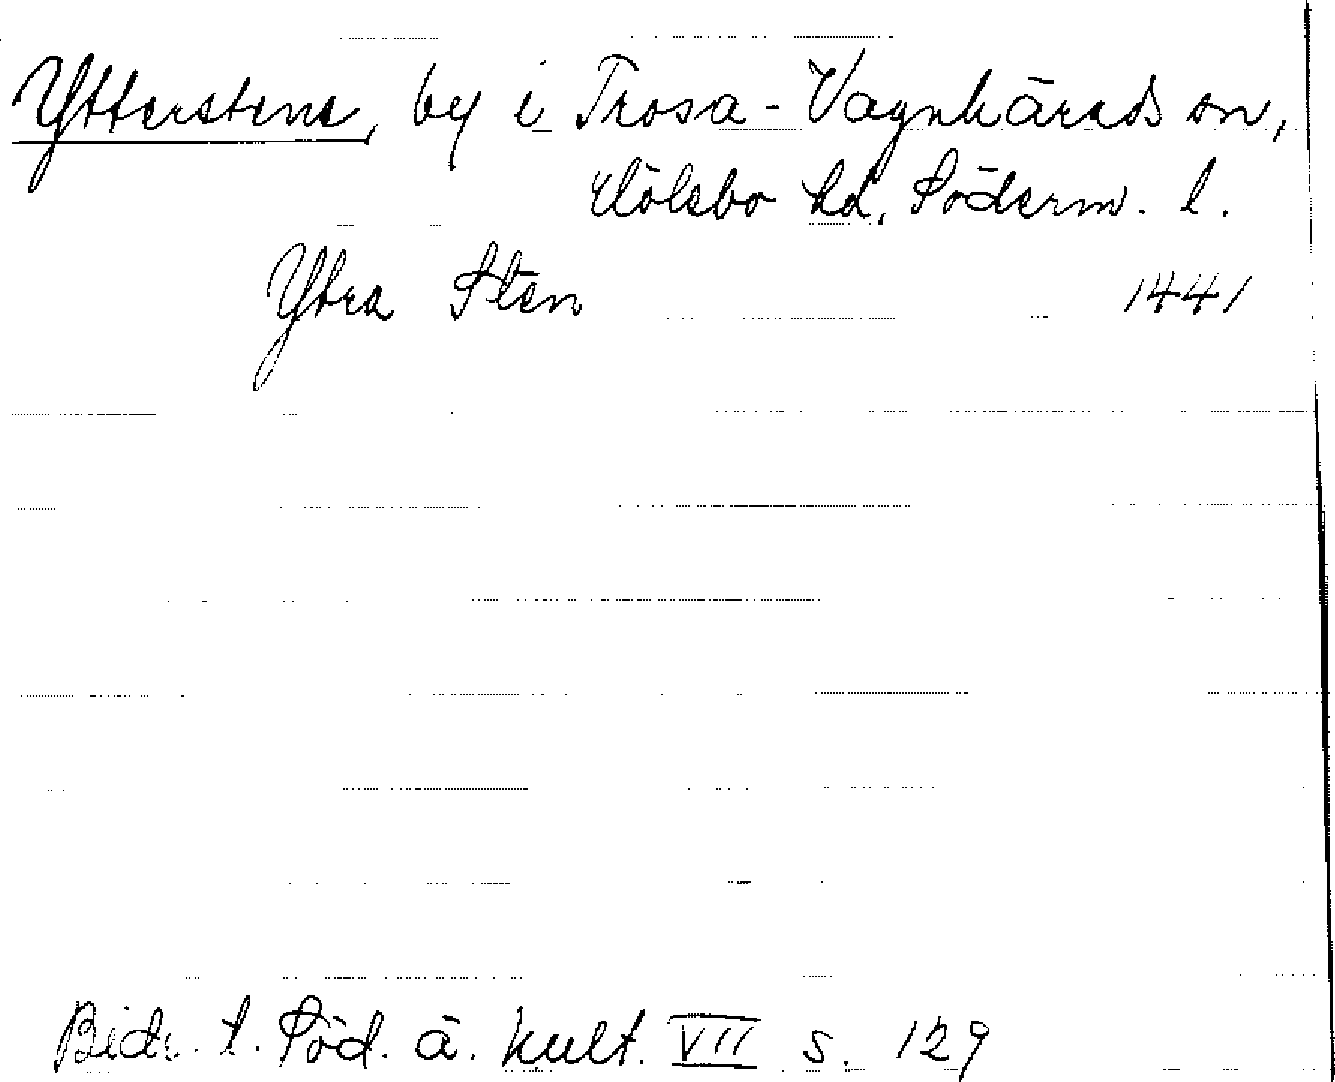 Ytterstene, by i Trosa-Vagnhärads sn,
Hölebo hd, Söderm. l.
Ytra Sten 1441
Bidr. t. Söd. ä. kult. VII s. 129